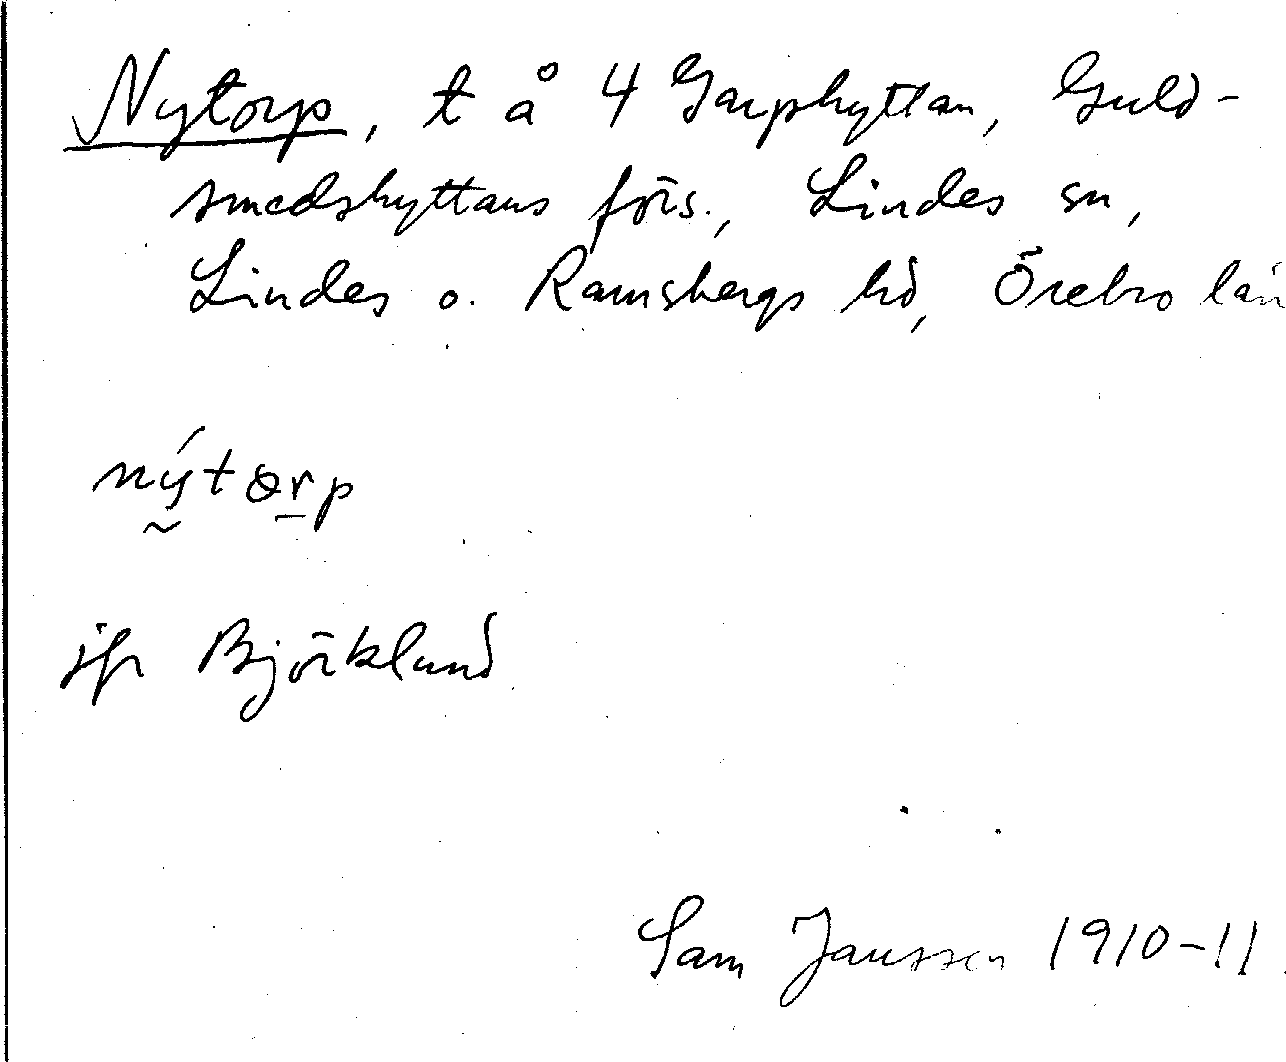 Nytorp, t å 4 Garphyttan, Guld-
smedshyttans förs., Lindes sn,
Lindes o. Ramsbergs hd, Örebro län
nýtɵrp
jfr Björklund
Sam Jansson 1910-11